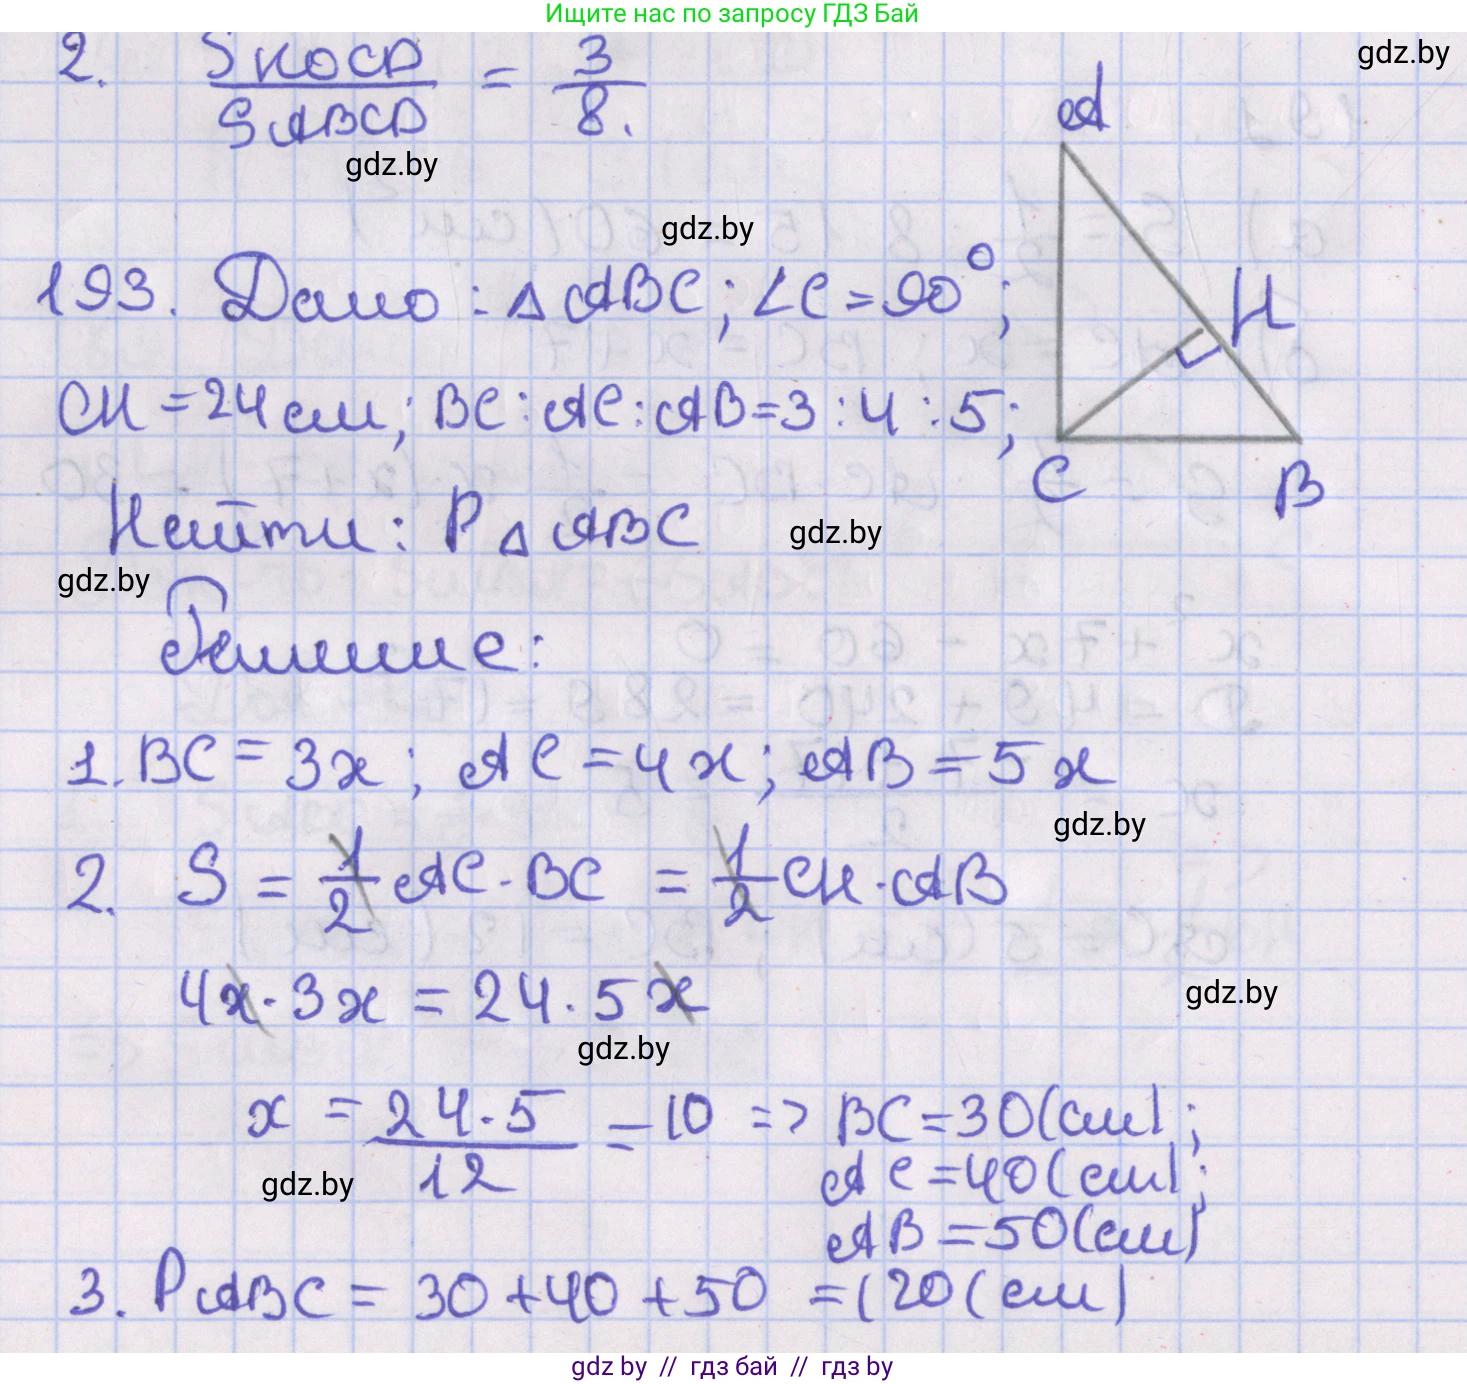 Ищите нас по запросу ГДЗ Бай
gdz.by
2. SKOCD / SABCD = 3 / 8.
gdz.by
gdz.by
193. Дано: △ ABC; ∠C = 90°;
CH = 24 см; BC : AC : AB = 3 : 4 : 5;
Найти: P△ ABC
A
H
C
B
gdz.by
gdz.by
Решение:
1. BC = 3x; AC = 4x; AB = 5x
gdz.by
2. S = 1/2 AC · BC = 1/2 CH · AB
4x · 3x = 24 · 5x
gdz.by
gdz.by
x = 24 · 5 / 12 = 10 => BC = 30 (см);
AC = 40 (см);
AB = 50 (см)
gdz.by
3. PABC = 30 + 40 + 50 = 120 (см)
gdz by // гдз бай // гдз by